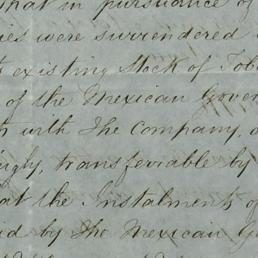 that in pursuance of
ies were surrendered
existing Stock of Tob
of the Mexican Gover
with The Company,
ingly, transferrable by
at the Instalments of
id by The Mexican G